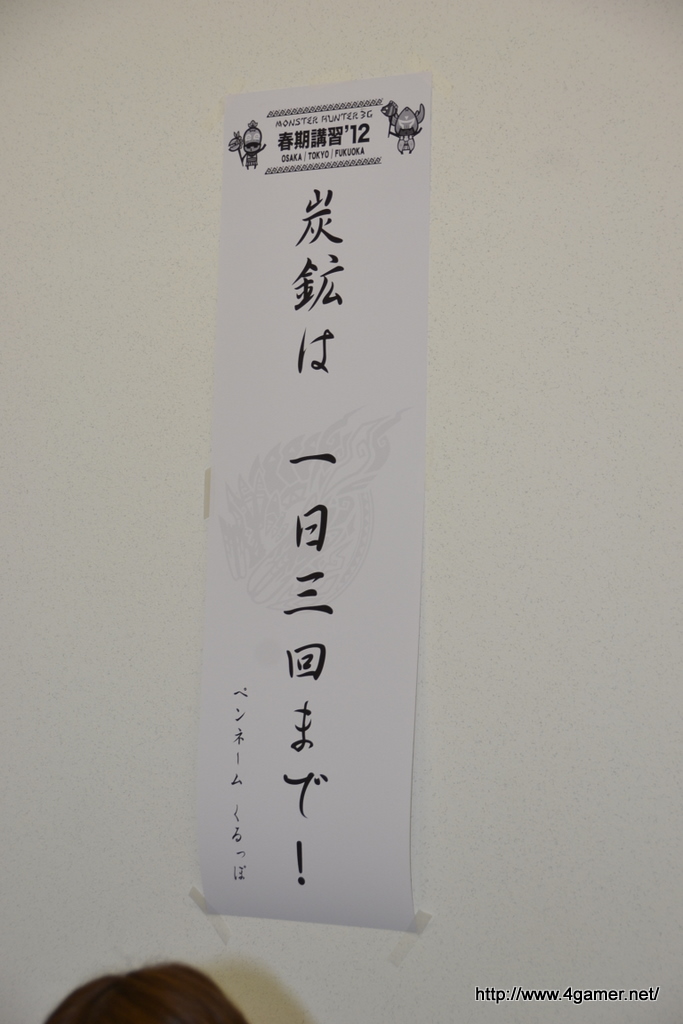 MONSTER HUNTER 3G
春期講習'12
OSAKA / TOKYO / FUKUOKA
炭鉱は 一日三回まで!
ペンネーム くるっぽ
http://www.4gamer.net/